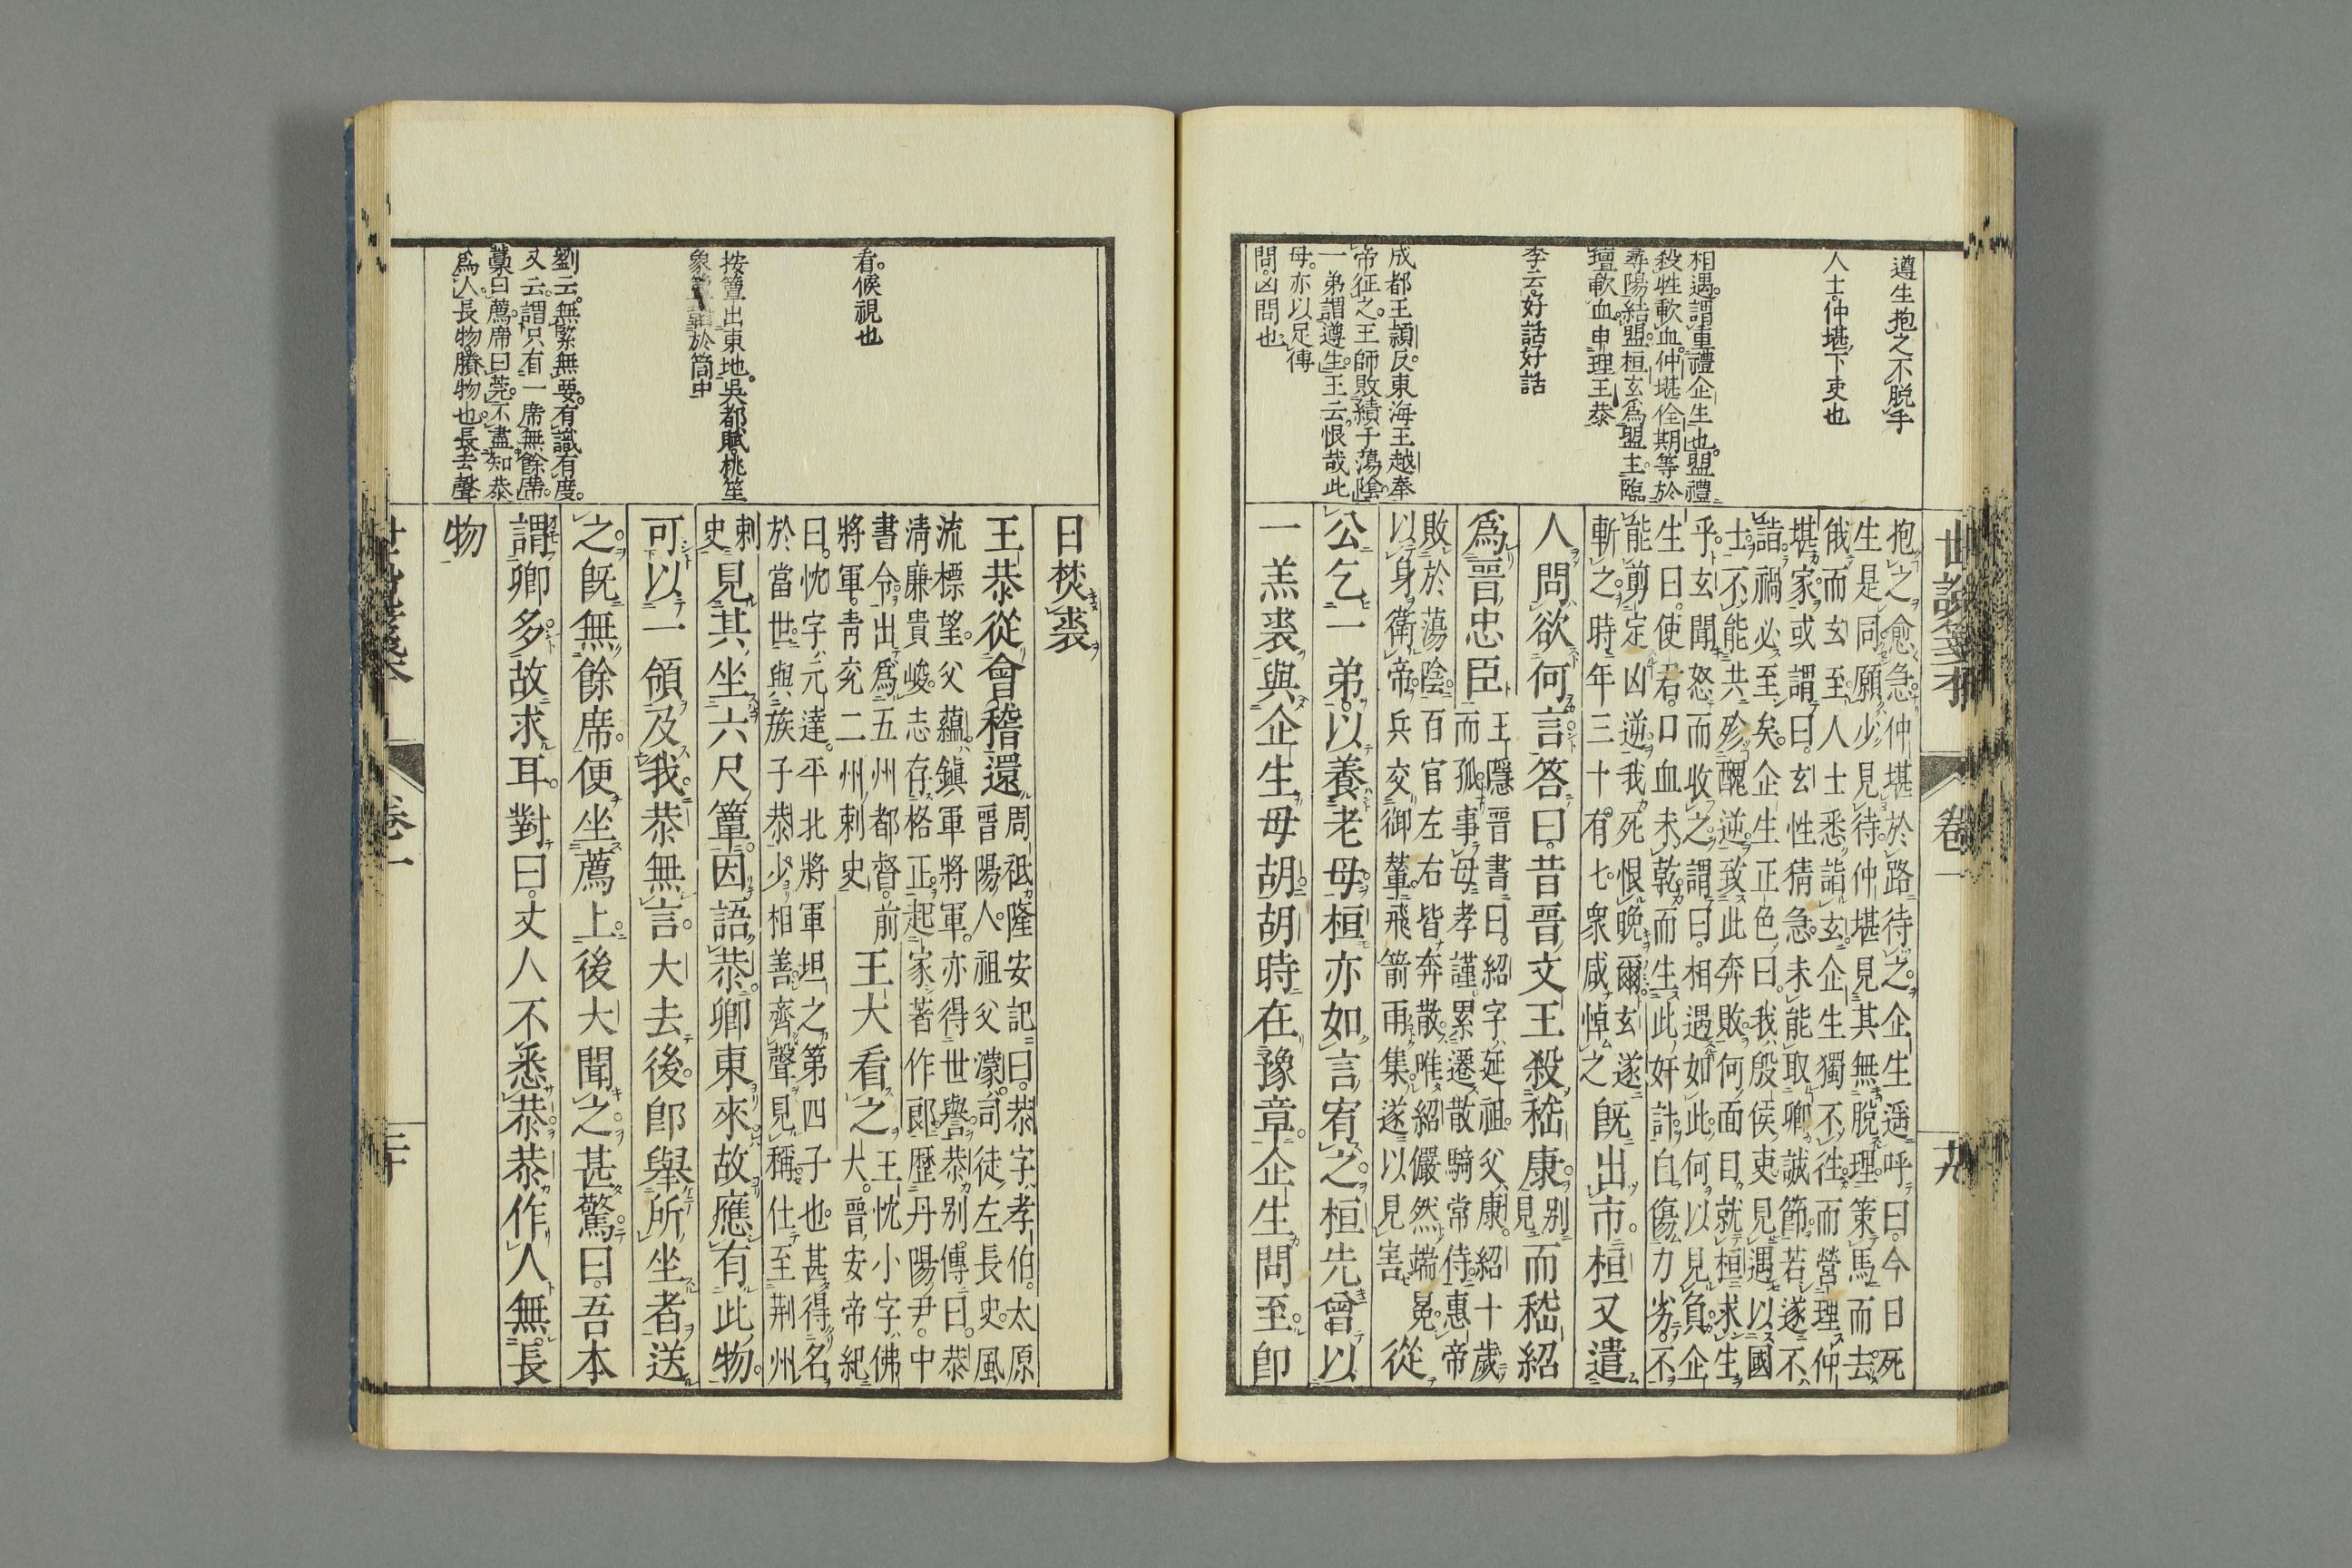 遵生抱之不脫手
人士仲堪下吏也
相遇謂重禮企生也盟禮
殺牲歃血仲堪佺期等於
尋陽結盟桓玄爲盟主臨
壇歃血申理王恭
李云好話好話
成都王穎反東海王越奉
帝征之王師敗績于蕩陰
一弟謂遵生王云恨哉此
母亦以足傳
問凶問也
抱之愈急仲堪於路待之企生遥呼曰今日死
生是同願少見待仲堪見其無脫理策馬而去
俄而玄至人士悉詣玄企生獨不往而營理仲
堪家或謂曰玄性猜急未能取卿誠節若遂不
詣禍必至矣企生正色曰我殷侯吏見遇以國
士不能共殄醜逆致此奔敗何面目就桓求生
乎玄聞怒而收之謂曰相遇如此何以見負企
生曰使君口血未乾而生此奸計自傷力劣不
能剪定凶逆我死恨晚爾玄遂
斬之時年三十有七衆咸悼之
既出市桓又遣
人問欲何言答曰昔晉文王殺嵇康
別見
而嵇紹
爲晉忠臣
王隱晉書曰紹字延祖父康紹十歲
而孤事母孝謹累遷散騎常侍惠帝
敗於蕩陰百官左右皆奔散唯紹儼然端冕
以身衛帝兵交御輦飛箭雨集遂以見害
從
公乞一弟以養老母桓亦如言宥之桓先曾以
一羔裘與企生母胡胡時在豫章企生問至即
世說箋本
卷一
十九
日焚裘
王恭從會稽還
周祗隆安記曰恭字孝伯太原
晉陽人祖父濛司徒左長史風
流標望父蘊鎮軍將軍亦得世譽恭別傳曰恭
淸廉貴峻志存格正起家著作郎歷丹陽尹中
書令出爲五州都督前
將軍靑兗二州刺史
王大看之
王忱小字佛
大晉安帝紀
曰忱字元達平北將軍坦之第四子也甚得名
於當世與族子恭少相善齊聲見稱仕至荆州
刺
史
見其坐六尺簟因語恭卿東來故應有此物
可以一領及我恭無言大去後卽舉所坐者送
之既無餘席便坐薦上後大聞之甚驚曰吾本
謂卿多故求耳對曰丈人不悉恭恭作人無長
物
看候視也
按簟出東地吳都賦桃笙
於筒中
劉云無緊無要有識有度
又云謂只有一席無餘席
藁曰薦席曰莞不盡知恭
爲人長物賸物也長去聲
卷一
二十